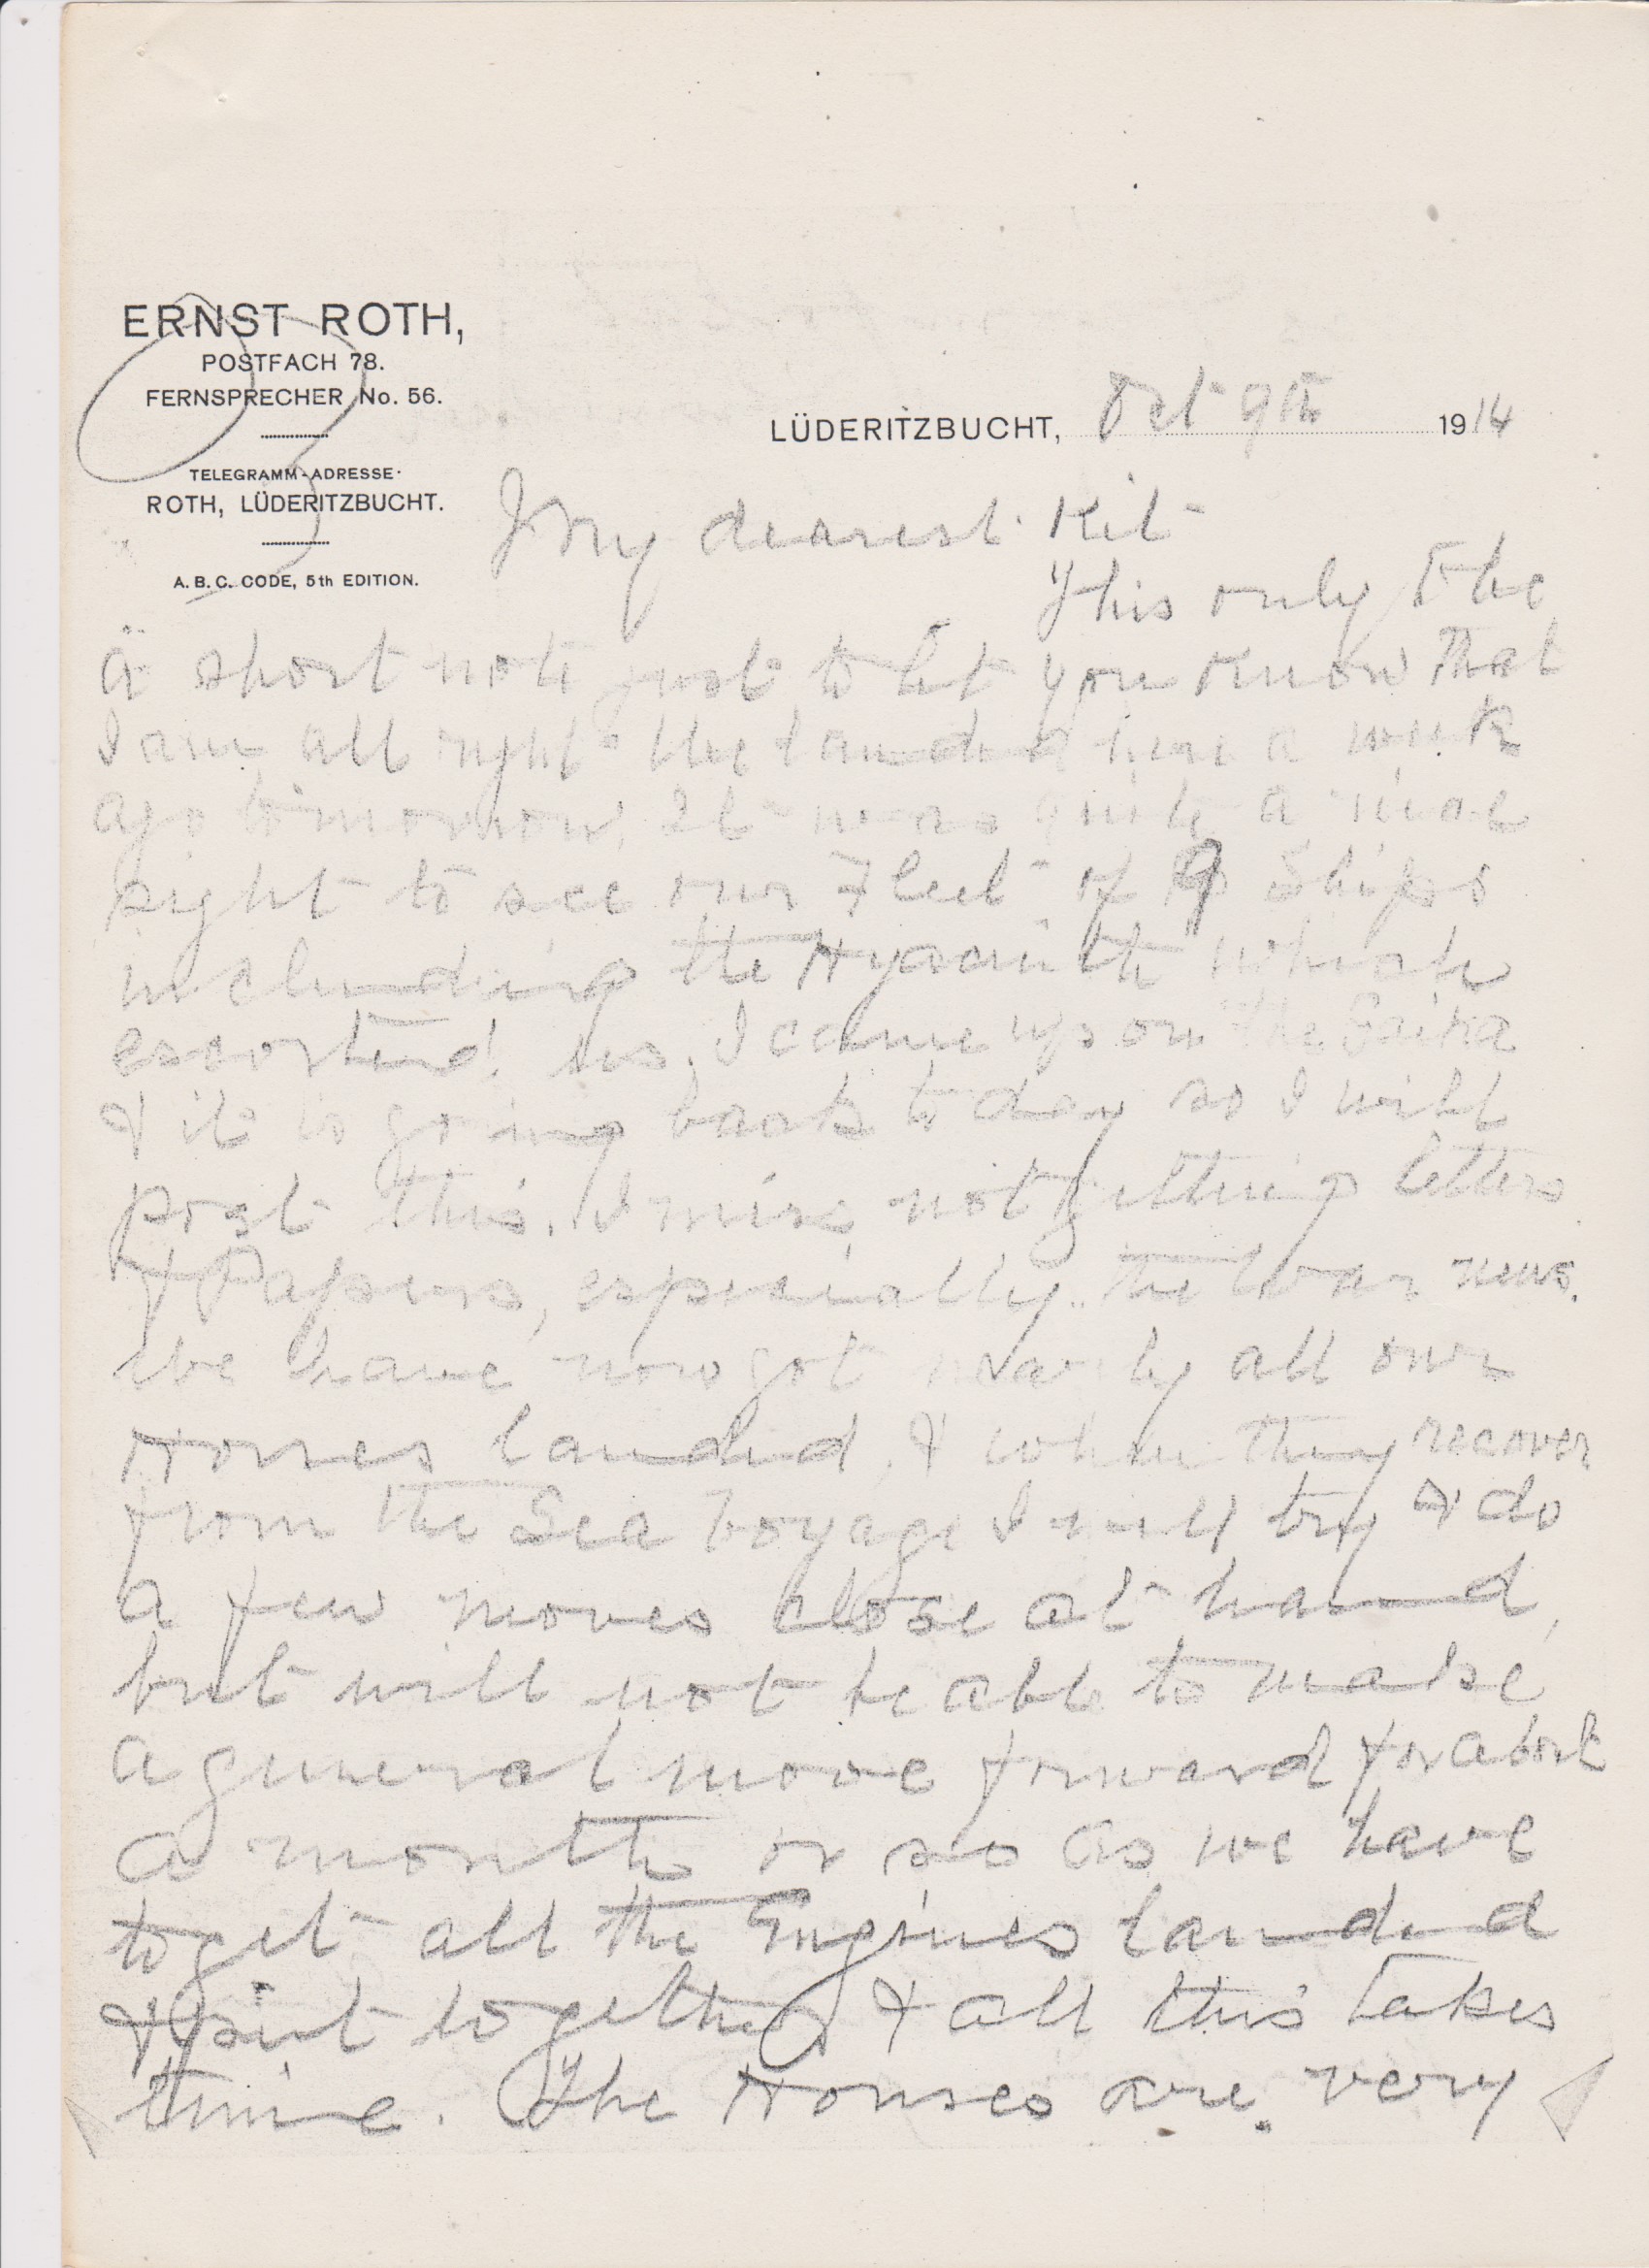 ERNST ROTH,
POSTFACH 78.
FERNSPRECHER No. 56.
TELEGRAMM-ADRESSE·
ROTH, LÜDERITZBUCHT.
A. B. C. CODE, 5th EDITION.
LÜDERITZBUCHT, Oct 9th 1914
My dearest Kit
This only to be
a short note just to let you know that
I am all right. We landed here a week
ago tomorrow, It was quite a neat
sight to see our Fleet of 9 Ships
including the Hyacinth which
escorted us. I came up on the Gaika
& it is going back to day so I will
post this. I miss not getting letters
& Papers, especially the War news.
We have now got nearly all our
Horses landed, & when they recover
from the Sea Voyage I will try & do
a few moves close at hand,
but will not be able to make
a general move forward for about
a month or so as we have
to get all the Engines landed
& put together & all this takes
time. The Horses are very